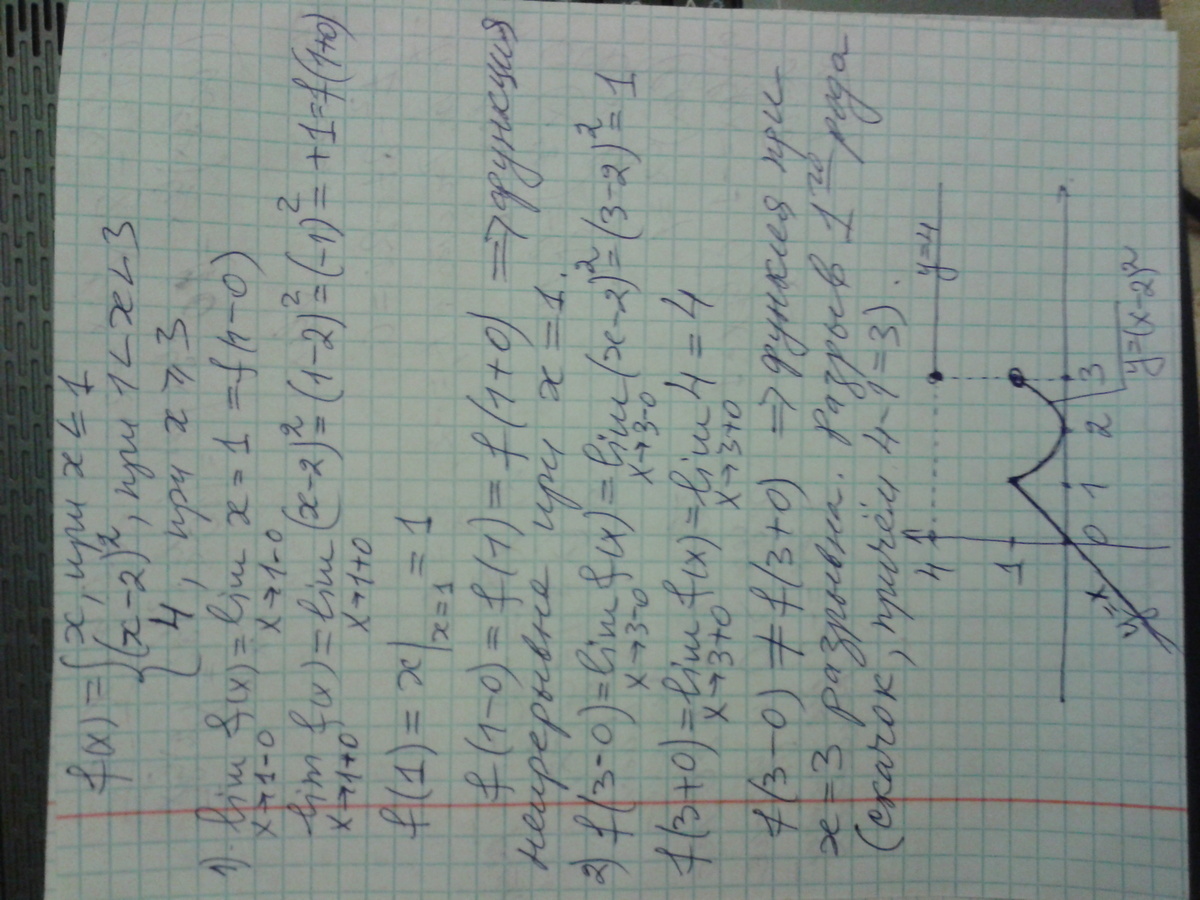 f(x) = { x, при x ≤ 1
(x-2)², при 1 < x < 3
4, при x ≥ 3
1). lim f(x) = lim x = 1 = f(1-0)
x→1-0 x→1-0
lim f(x) = lim (x-2)² = (1-2)² = (-1)² = +1 = f(1+0)
x→1+0 x→1+0
f(1) = x| = 1
x=1
f(1-0) = f(1) = f(1+0) ⇒ функция
непрерывна при x = 1.
2) f(3-0) = lim f(x) = lim (x-2)² = (3-2)² = 1
x→3-0 x→3-0
f(3+0) = lim f(x) = lim 4 = 4
x→3+0 x→3+0
f(3-0) ≠ f(3+0) ⇒ функция при
x = 3 разрывна. Разрыв 1го рода
(скачок, причём 4-1=3).
4
y=4
1
0 1 2 3
y=x
y=(x-2)²